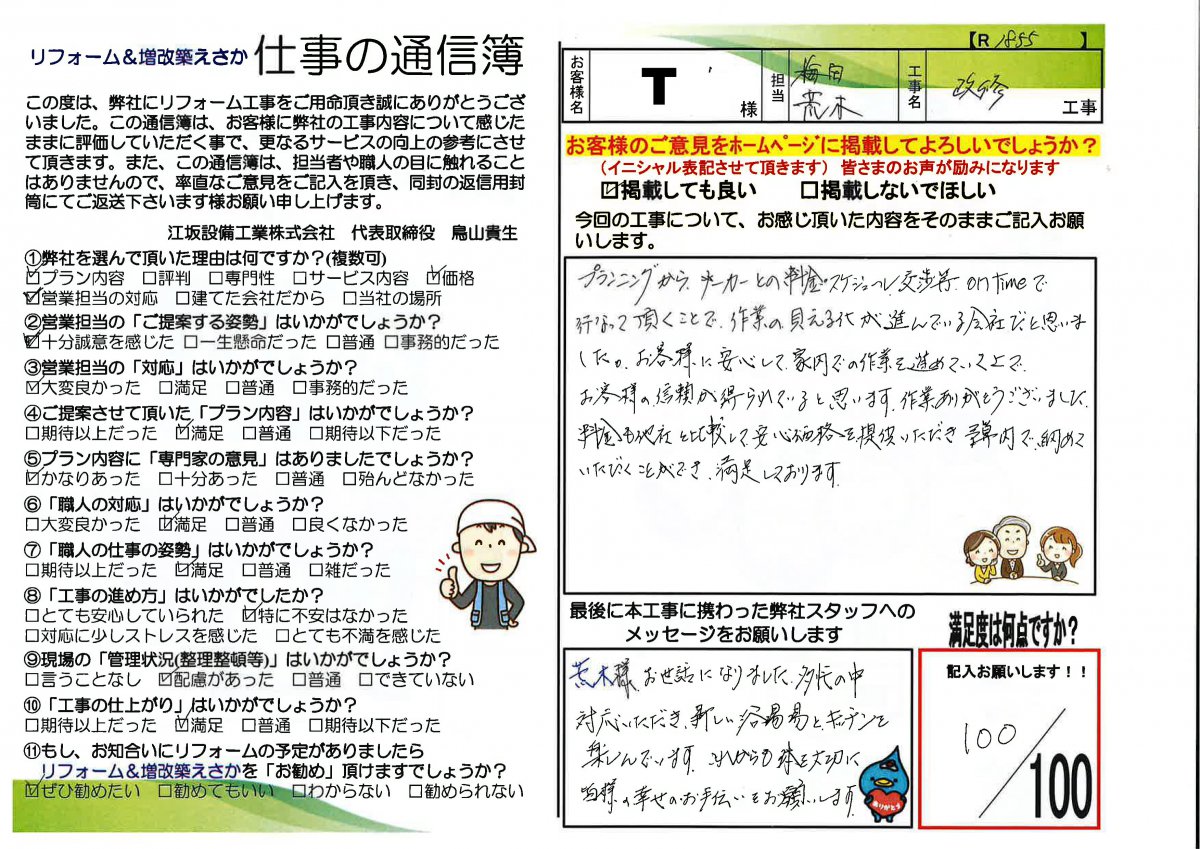 リフォーム＆増改築えさか 仕事の通信簿
この度は、弊社にリフォーム工事をご用命頂き誠にありがとうござ
いました。この通信簿は、お客様に弊社の工事内容について感じた
ままに評価していただく事で、更なるサービスの向上の参考にさせ
て頂きます。また、この通信簿は、担当者や職人の目に触れること
はありませんので、率直なご意見をご記入を頂き、同封の返信用封
筒にてご返送下さいます様お願い申し上げます。
江坂設備工業株式会社　代表取締役　鳥山貴生
①弊社を選んで頂いた理由は何ですか？(複数可)
☑プラン内容　□評判　□専門性　□サービス内容　☑価格
☑営業担当の対応　□建てた会社だから　□当社の場所
②営業担当の「ご提案する姿勢」はいかがでしょうか？
☑十分誠意を感じた　□一生懸命だった　□普通　□事務的だった
③営業担当の「対応」はいかがでしょうか？
☑大変良かった　□満足　□普通　□事務的だった
④ご提案させて頂いた「プラン内容」はいかがでしょうか？
□期待以上だった　☑満足　□普通　□期待以下だった
⑤プラン内容に「専門家の意見」はありましたでしょうか？
☑かなりあった　□十分あった　□普通　□殆んどなかった
⑥「職人の対応」はいかがでしょうか？
□大変良かった　☑満足　□普通　□良くなかった
⑦「職人の仕事の姿勢」はいかがでしょうか？
□期待以上だった　☑満足　□普通　□雑だった
⑧「工事の進め方」はいかがでしたか？
□とても安心していられた　☑特に不安はなかった
□対応に少しストレスを感じた　□とても不満を感じた
⑨現場の「管理状況(整理整頓等)」はいかがでしょうか？
□言うことなし　☑配慮があった　□普通　□できていない
⑩「工事の仕上がり」はいかがでしょうか？
□期待以上だった　☑満足　□普通　□期待以下だった
⑪もし、お知合いにリフォームの予定がありましたら
リフォーム＆増改築えさかを「お勧め」頂けますでしょうか？
☑ぜひ勧めたい　□勧めてもいい　□わからない　□勧められない
【R 1855 】
お客様名 T 様 担当 梅田 荒木 工事名 改修 工事
お客様のご意見をホームページに掲載してよろしいでしょうか？
（イニシャル表記させて頂きます） 皆さまのお声が励みになります
☑掲載しても良い　□掲載しないでほしい
今回の工事について、お感じ頂いた内容をそのままご記入お願
いします。
プランニングから、メーカーとの料金、スケジュール、交渉等、on timeで
行なって頂くことで、作業の見える化が進んでいる会社だと思いま
した。お客様に安心して家内での作業を進めていく上で、
お客様の信頼が得られていると思います。作業ありがとうございました。
料金も他社と比較して安心価格を提供いただき 予算内で、納めて
いただくことができ、満足しております。
最後に本工事に携わった弊社スタッフへの
メッセージをお願いします
荒木様 お世話になりました。多忙の中
対応いただき、新しい浴場とキッチンを
楽しんでいます。これからも体を大切に
皆様の幸せのお手伝いをお願いします。
ありがとう
満足度は何点ですか？
記入お願いします！！
100／100